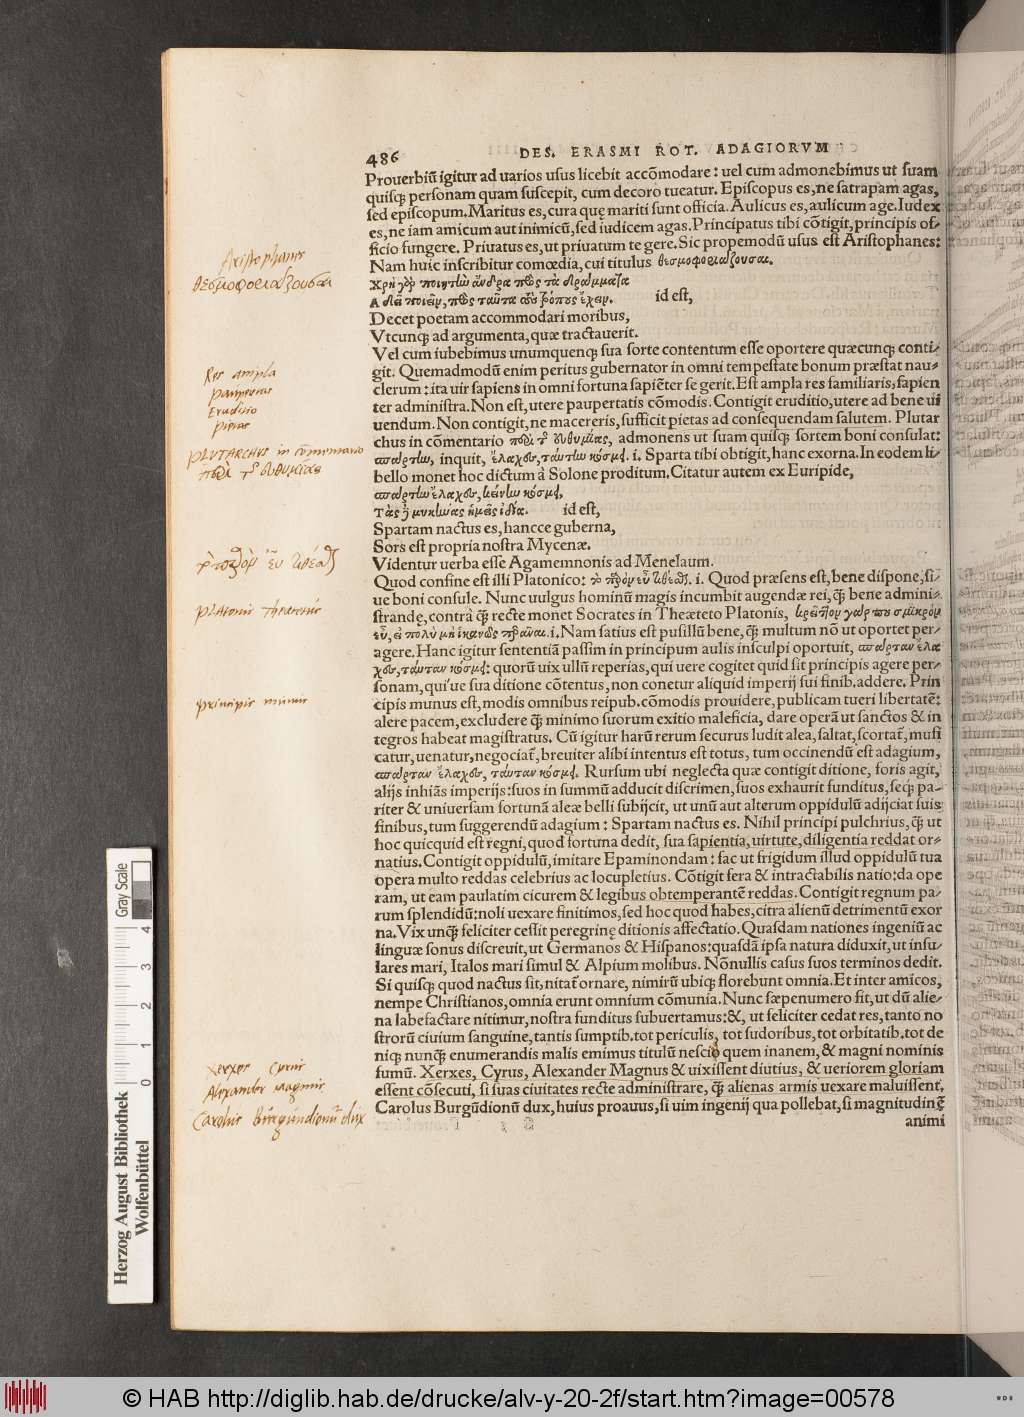 486 DES. ERASMI ROT. ADAGIORVM
Prouerbiū igitur ad uarios usus licebit accōmodare: uel cum admonebimus ut suam
quisq; personam quam suscepit, cum decoro tueatur. Episcopus es, ne satrapam agas,
sed episcopum. Maritus es, cura quę mariti sunt officia. Aulicus es, aulicum age. Iudex
es, ne iam amicum aut inimicū, sed iudicem agas. Principatus tibi cōtigit, principis of-
ficio fungere. Priuatus es, ut priuatum te gere. Sic propemodū usus est Aristophanes:
Nam huic inscribitur comœdia, cui titulus θεσμοφοριάζουσαι.
Χρὴ γὰρ ποιητὴν ἄνδρα πρὸς τὰ δράμματα
Α δεῖ ποιεῖν, πρὸς ταῦτα τοὺς τρόπους ἔχειν. id est,
Decet poetam accommodari moribus,
Vtcunq; ad argumenta, quæ tractauerit.
Vel cum iubebimus unumquenq; sua sorte contentum esse oportere quæcunq; conti-
git. Quemadmodū enim peritus gubernator in omni tempestate bonum præstat nau-
clerum: ita uir sapiens in omni fortuna sapiēter se gerit. Est ampla res familiaris, sapien
ter administra. Non est, utere paupertatis cōmodis. Contigit eruditio, utere ad bene ui
uendum. Non contigit, ne macereris, sufficit pietas ad consequendam salutem. Plutar
chus in cōmentario περὶ τ̃ εὐθυμίας, admonens ut suam quisq; sortem boni consulat:
σπάρτην, inquit, ἔλαχες, ταύτην κόσμει. i. Sparta tibi obtigit, hanc exorna. In eodem li-
bello monet hoc dictum à Solone proditum. Citatur autem ex Euripide,
σπάρτην ἔλαχες, κείνην κόσμει,
Τὰς δὲ μυκήνας ἡμεῖς ἰδίᾳ. id est,
Spartam nactus es, hancce guberna,
Sors est propria nostra Mycenæ.
Videntur uerba esse Agamemnonis ad Menelaum.
Quod confine est illi Platonico: τὸ παρὸν εὖ τίθεσθαι. i. Quod præsens est, bene dispone, si-
ue boni consule. Nunc uulgus hominū magis incumbit augendæ rei, q̄; bene admini-
strandę, contrà q̄; recte monet Socrates in Theæteto Platonis, κρεῖττον γάρ που σμικρὸν
εὖ, ἢ πολὺ μὴ ἱκανῶς περᾶναι. i. Nam satius est pusillū bene, q̄; multum nō ut oportet per-
agere. Hanc igitur sententiā passim in principum aulis insculpi oportuit, σπάρταν ἔλα
χες, ταύταν κόσμει: quorū uix ullū reperias, qui uere cogitet quid sit principis agere per-
sonam, qui'ue sua ditione cōtentus, non conetur aliquid imperij sui finib. addere. Prin
cipis munus est, modis omnibus reipub. cōmodis prouidere, publicam tueri libertatē:
alere pacem, excludere q̄; minimo suorum exitio maleficia, dare operā ut sanctos & in
tegros habeat magistratus. Cū igitur harū rerum securus ludit alea, saltat, scortat̃, musi
catur, uenatur, negociat̃, breuiter alibi intentus est totus, tum occinendū est adagium,
σπάρταν ἔλαχες, ταύταν κόσμει. Rursum ubi neglecta quæ contigit ditione, foris agit,
alijs inhiās imperijs: suos in summū adducit discrimen, suos exhaurit funditus, seq; pa-
riter & uniuersam fortunā aleæ belli subijcit, ut unū aut alterum oppidulū adijciat suis
finibus, tum suggerendū adagium: Spartam nactus es. Nihil principi pulchrius, q̄; ut
hoc quicquid est regni, quod fortuna dedit, sua sapientia, uirtute, diligentia reddat or-
natius. Contigit oppidulū, imitare Epaminondam: fac ut frigidum illud oppidulū tua
opera multo reddas celebrius ac locupletius. Cōtigit fera & intractabilis natio: da ope
ram, ut eam paulatim cicurem & legibus obtemperantē reddas. Contigit regnum pa-
rum splendidū: noli uexare finitimos, sed hoc quod habes, citra alienū detrimentū exor
na. Vix unq̄; feliciter cessit peregrinę ditionis affectatio. Quasdam nationes ingeniū ac
linguæ sonus discreuit, ut Germanos & Hispanos: quasdā ipsa natura diduxit, ut insu-
lares mari, Italos mari simul & Alpium molibus. Nōnullis casus suos terminos dedit.
Si quisq; quod nactus sit, nitat̃ ornare, nimirū ubiq; florebunt omnia. Et inter amicos,
nempe Christianos, omnia erunt omnium cōmunia. Nunc sæpenumero fit, ut dū alie-
na labefactare nitimur, nostra funditus subuertamus: &, ut feliciter cedat res, tanto no
strorū ciuium sanguine, tantis sumptib. tot periculis, tot sudoribus, tot orbitatib. tot de
niq; nunq̄; enumerandis malis emimus titulū nescio quem inanem, & magni nominis
fumū. Xerxes, Cyrus, Alexander Magnus & uixissent diutius, & ueriorem gloriam
essent cōsecuti, si suas ciuitates recte administrare, q̄; alienas armis uexare maluissent,
Carolus Burgūdionū dux, huius proauus, si uim ingenij qua pollebat, si magnitudinē
animi
Aristophanis
θεσμοφοριάζουσαι
Res ampla
paupertas
Eruditio
pietas
PLUTARCHUS in cōmentario
περὶ τ̃ εὐθυμίας
τὸ παρὸν εὖ τίθεσθαι
Platonis Theætetus
principis munus
Xerxes Cyrus
Alexander magnus
Carolus Burgundionū dux
Herzog August Bibliothek
Wolfenbüttel
0 1 2 3 4
Gray Scale
© HAB http://diglib.hab.de/drucke/alv-y-20-2f/start.htm?image=00578